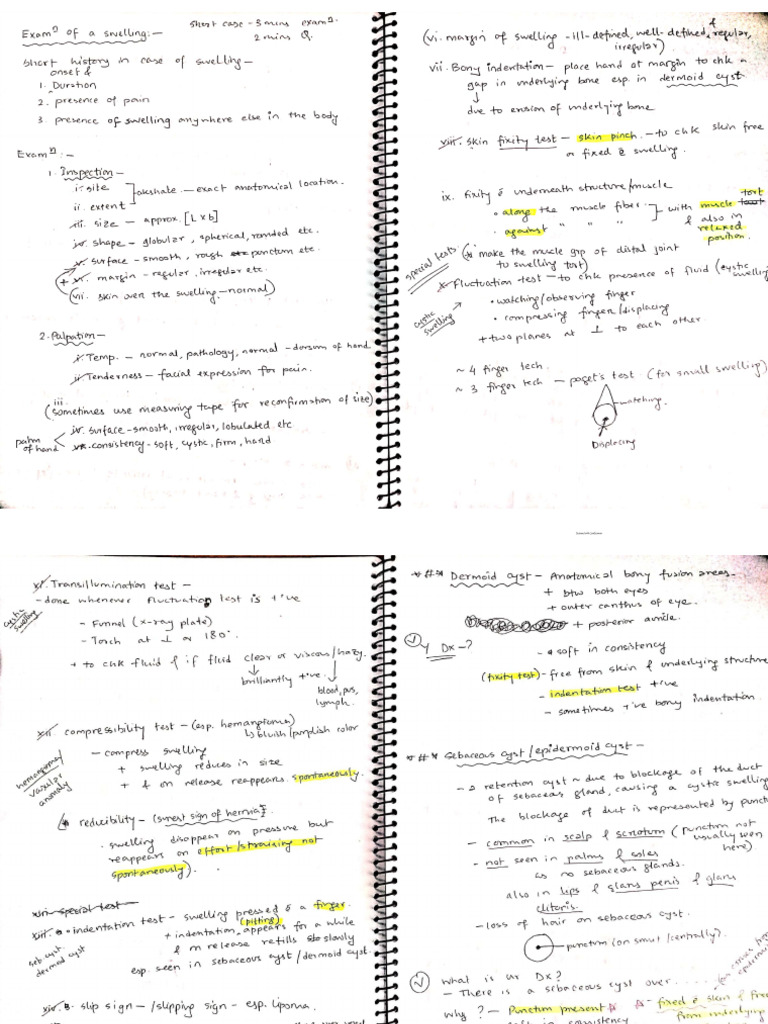 Examⁿ of a swelling:-
short case - 3 mins examⁿ.
2 mins Q.
Short history in case of swelling-
onset &
1. Duration
2. presence of pain
3. presence of swelling anywhere else in the body
Examⁿ:-
1. Inspection-
i. site
ii. extent
- exact anatomical location.
iii. size - approx. [L x b]
iv. shape - globular, spherical, rounded etc.
v. surface - smooth, rough punctum etc.
+ vi. margin - regular, irregular etc.
(vii. skin over the swelling - normal)
2. Palpation-
i. Temp. - normal, pathology, normal - dorsum of hand
ii. Tenderness - facial expression for pain.
iii.
(sometimes use measuring tape for reconfirmation of size)
palm of hand
iv. surface - smooth, irregular, lobulated etc
v. consistency - soft, cystic, firm, hard
(vi. margin of swelling - ill-defined, well-defined, & regular,
irregular)
vii. Bony indentation - place hand at margin to chk a
gap in underlying bone esp. in dermoid cyst
↓
due to erosion of underlying bone
viii. skin fixity test - skin pinch - to chk skin free
or fixed c̄ swelling.
ix. fixity c̄ underneath structure/muscle
• along the muscle fiber
• against " " "
} with muscle tort
& also in
relaxed
position.
(* make the muscle grp of distal joint
to swelling tort)
special tests.
x. Fluctuation test - to chk presence of fluid (cystic
swelling)
cystic swelling
• watching/observing finger
• compressing finger/displacing
+ two planes at ⊥ to each other
~ 4 finger tech.
~ 3 finger tech - paget's test (for small swelling)
watching.
Displacing
xi. Transillumination test -
- done whenever fluctuation test is +ve
cystic swelling
- Funnel (x-ray plate)
- Torch at ⊥ or 180°.
+ to chk fluid & if fluid clear or viscous/hazy.
brilliantly +ve.
blood, pus,
lymph.
xii compressibility test - (esp. hemangioma)
↳ bluish/purplish color
hemangioma/
vascular
anomaly
- compress swelling
+ swelling reduces in size
+ & on release reappears spontaneously.
(* reducibility - (surest sign of hernia)
. swelling disappear on pressure but
reappears on effort/straining not
spontaneously).
xiii special test -
xiii. • indentation test - swelling pressed c̄ a finger.
(pitting)
+ indentation, appears for a while
& on release refills slowly
esp. seen in sebaceous cyst/dermoid cyst.
seb cyst.
dermoid cyst
xiv. slip sign - /slipping sign - esp. lipoma.
*#* Dermoid cyst - Anatomical bony fusion areas.
+ btw both eyes
+ outer canthus of eye.
+ posterior
Y Dx - ?
- soft in consistency
(fixity test) - free from skin & underlying structure
- indentation test +ve
- sometimes +ve bony indentation.
*#* Sebaceous cyst/epidermoid cyst -
- a retention cyst ~ due to blockage of the duct
of sebaceous gland, causing a cystic swelling
The blockage of duct is represented by punctum
- common in scalp & scrotum (punctum not
usually seen
here).
- not seen in palms & soles
as no sebaceous glands.
also in lips & glans penis & glans
clitoris.
- loss of hair on sebaceous cyst.
punctum (on smut/centrally).
What is ur Dx?
- There is a sebaceous cyst over ......
why? - Punctum present
- fixed c̄ skin & free
from underlying
soft in consistency